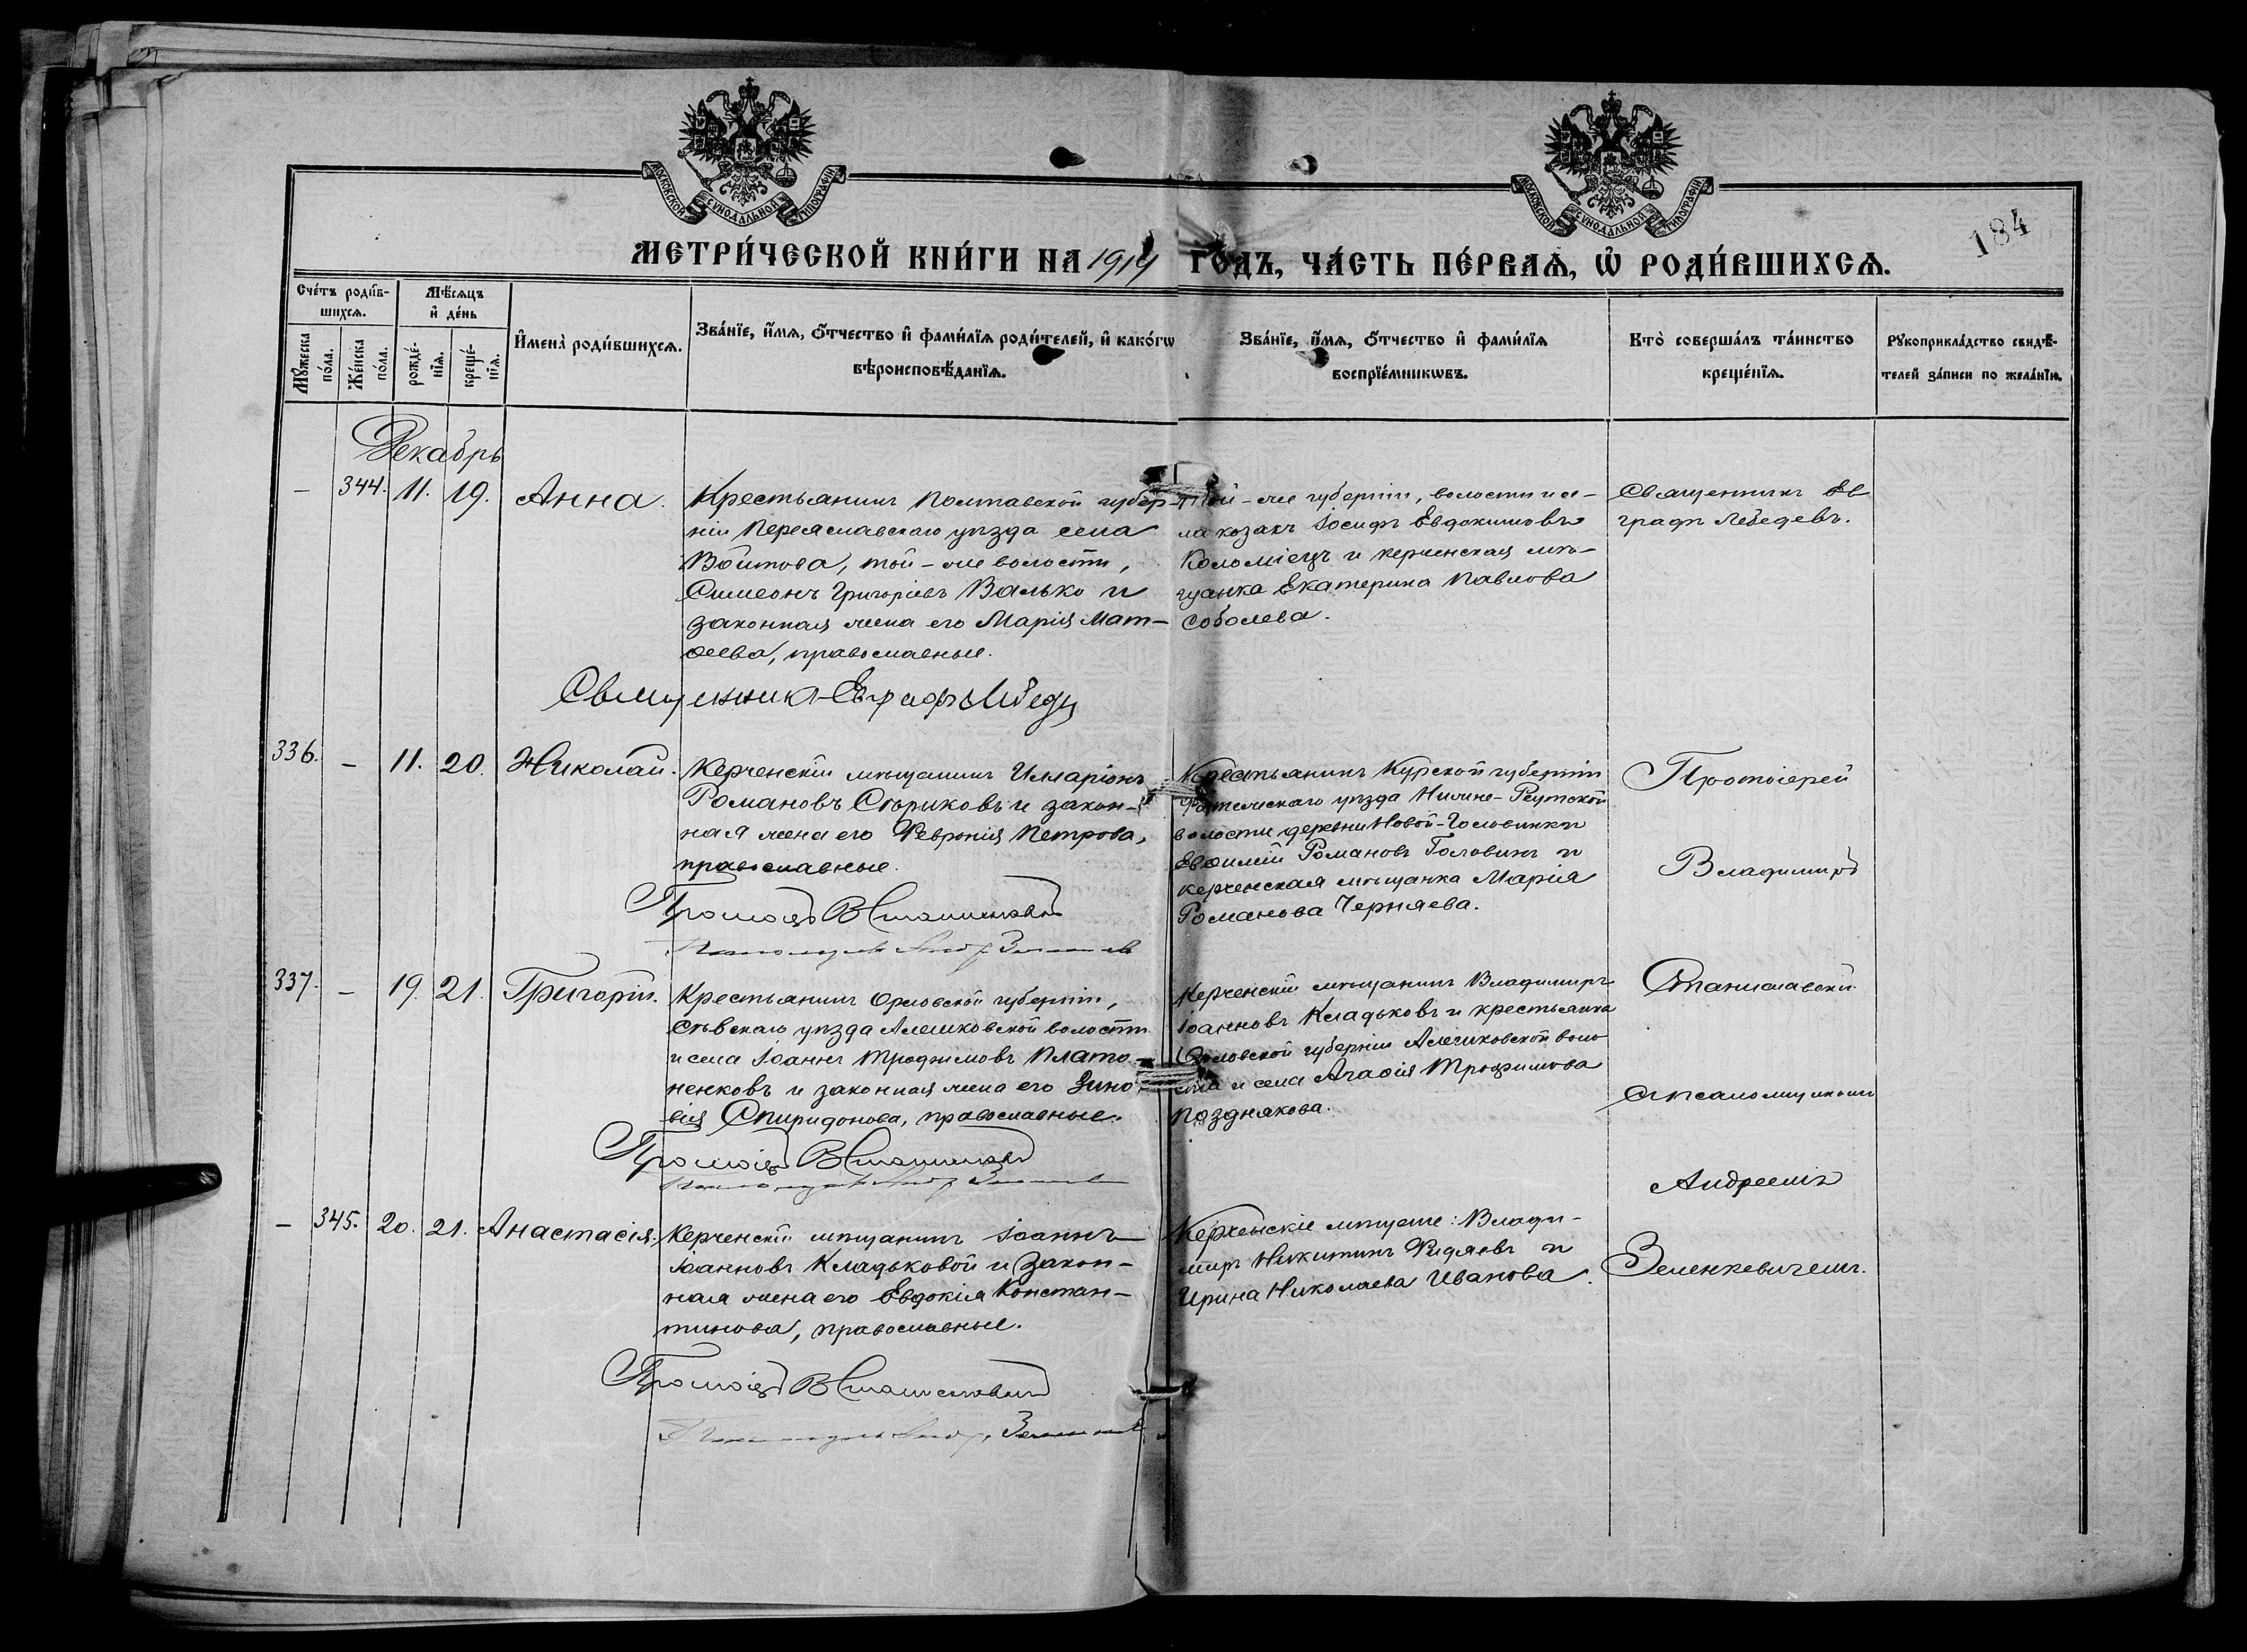 МОСКОВСКОЙ СѴНОДАЛЬНОЙ ТИПОГРАФІИ
МОСКОВСКОЙ СѴНОДАЛЬНОЙ ТИПОГРАФІИ
184
МЕТРИ́ЧЕСКОЙ КНИ́ГИ НА 1914 ГО́ДЪ, ЧА́СТЬ ПЕ́РВАѦ, Ѡ҆ РОДИ́ВШИХСѦ.
Сче́тъ роди́в-
шихсѧ.
Мѣ́сѧцъ
и҆ де́нь
Мꙋ́жеска
по́ла.
Же́нска
по́ла.
рожде́-
нїѧ.
креще́-
нїѧ.
И҆мена̀ роди́вшихсѧ.
Зва́нїе, и҆́мѧ, ѻ҆́тчество и҆ фами́лїѧ роди́телей, и҆ како́гѡ
вѣроисповѣ́данїѧ.
Зва́нїе, и҆́мѧ, ѻ҆́тчество и҆ фами́лїѧ
воспрїе́мникѡвъ.
Кто̀ соверша́лъ та́инство
креще́нїѧ.
Рꙋкоприкла́дство свидѣ́-
телей за́писи по жела́нїю.
Декабрь
– 344. 11. 19. Анна.
Крестьянинъ Полтавской губер-
ніи Переяславскаго уѣзда села
Войтова, той-же волости,
Симеонъ Григоріевъ Валько и
законная жена его Марія Мат-
ѳеева, православные.
Той-же губерніи, волости и се-
ла козакъ Іосифъ Евдокимовъ
Коломіецъ и керченская мѣ-
щанка Екатерина Павлова
Соболева.
Священникъ Ев
графъ Лебедевъ.
Священникъ Евграфъ Лебедев
336. – 11. 20. Николай.
Керченскій мѣщанинъ Илларіонъ
Романовъ Стариковъ и закон-
ная жена его Февронія Петрова,
православные.
Крестьянинъ Курской губерніи
Фатежскаго уѣзда Нижне-Реутской
волости деревни Новой-Головинки
Евѳимій Романовъ Головинъ и
керченская мѣщанка Марія
Романова Черняева.
Протоіерей
Владиміръ
337. – 19. 21. Григорій.
Крестьянинъ Орловской губерніи,
Сѣвскаго уѣзда Алешковской волости
и села Іоаннъ Трофимовъ Плато-
ненковъ и законная жена его Зино-
вія Спиридонова, православные.
Керченскій мѣщанинъ Владиміръ
Іоанновъ Кладьковъ и крестьянка
Орловской губерніи Алешковской воло
сти и села Агаѳія Трофимова
Позднякова.
Станиславскій
съ псаломщикомъ
Андреемъ
– 345. 20. 21. Анастасія.
Керченскій мѣщанинъ Іоаннъ
Іоанновъ Кладьковой и закон-
ная жена его Евдокія Констан-
тинова, православные.
Керченскіе мѣщане: Влади-
миръ Никитинъ Фидяевъ и
Ирина Николаева Иванова.
Зеленкевичемъ.